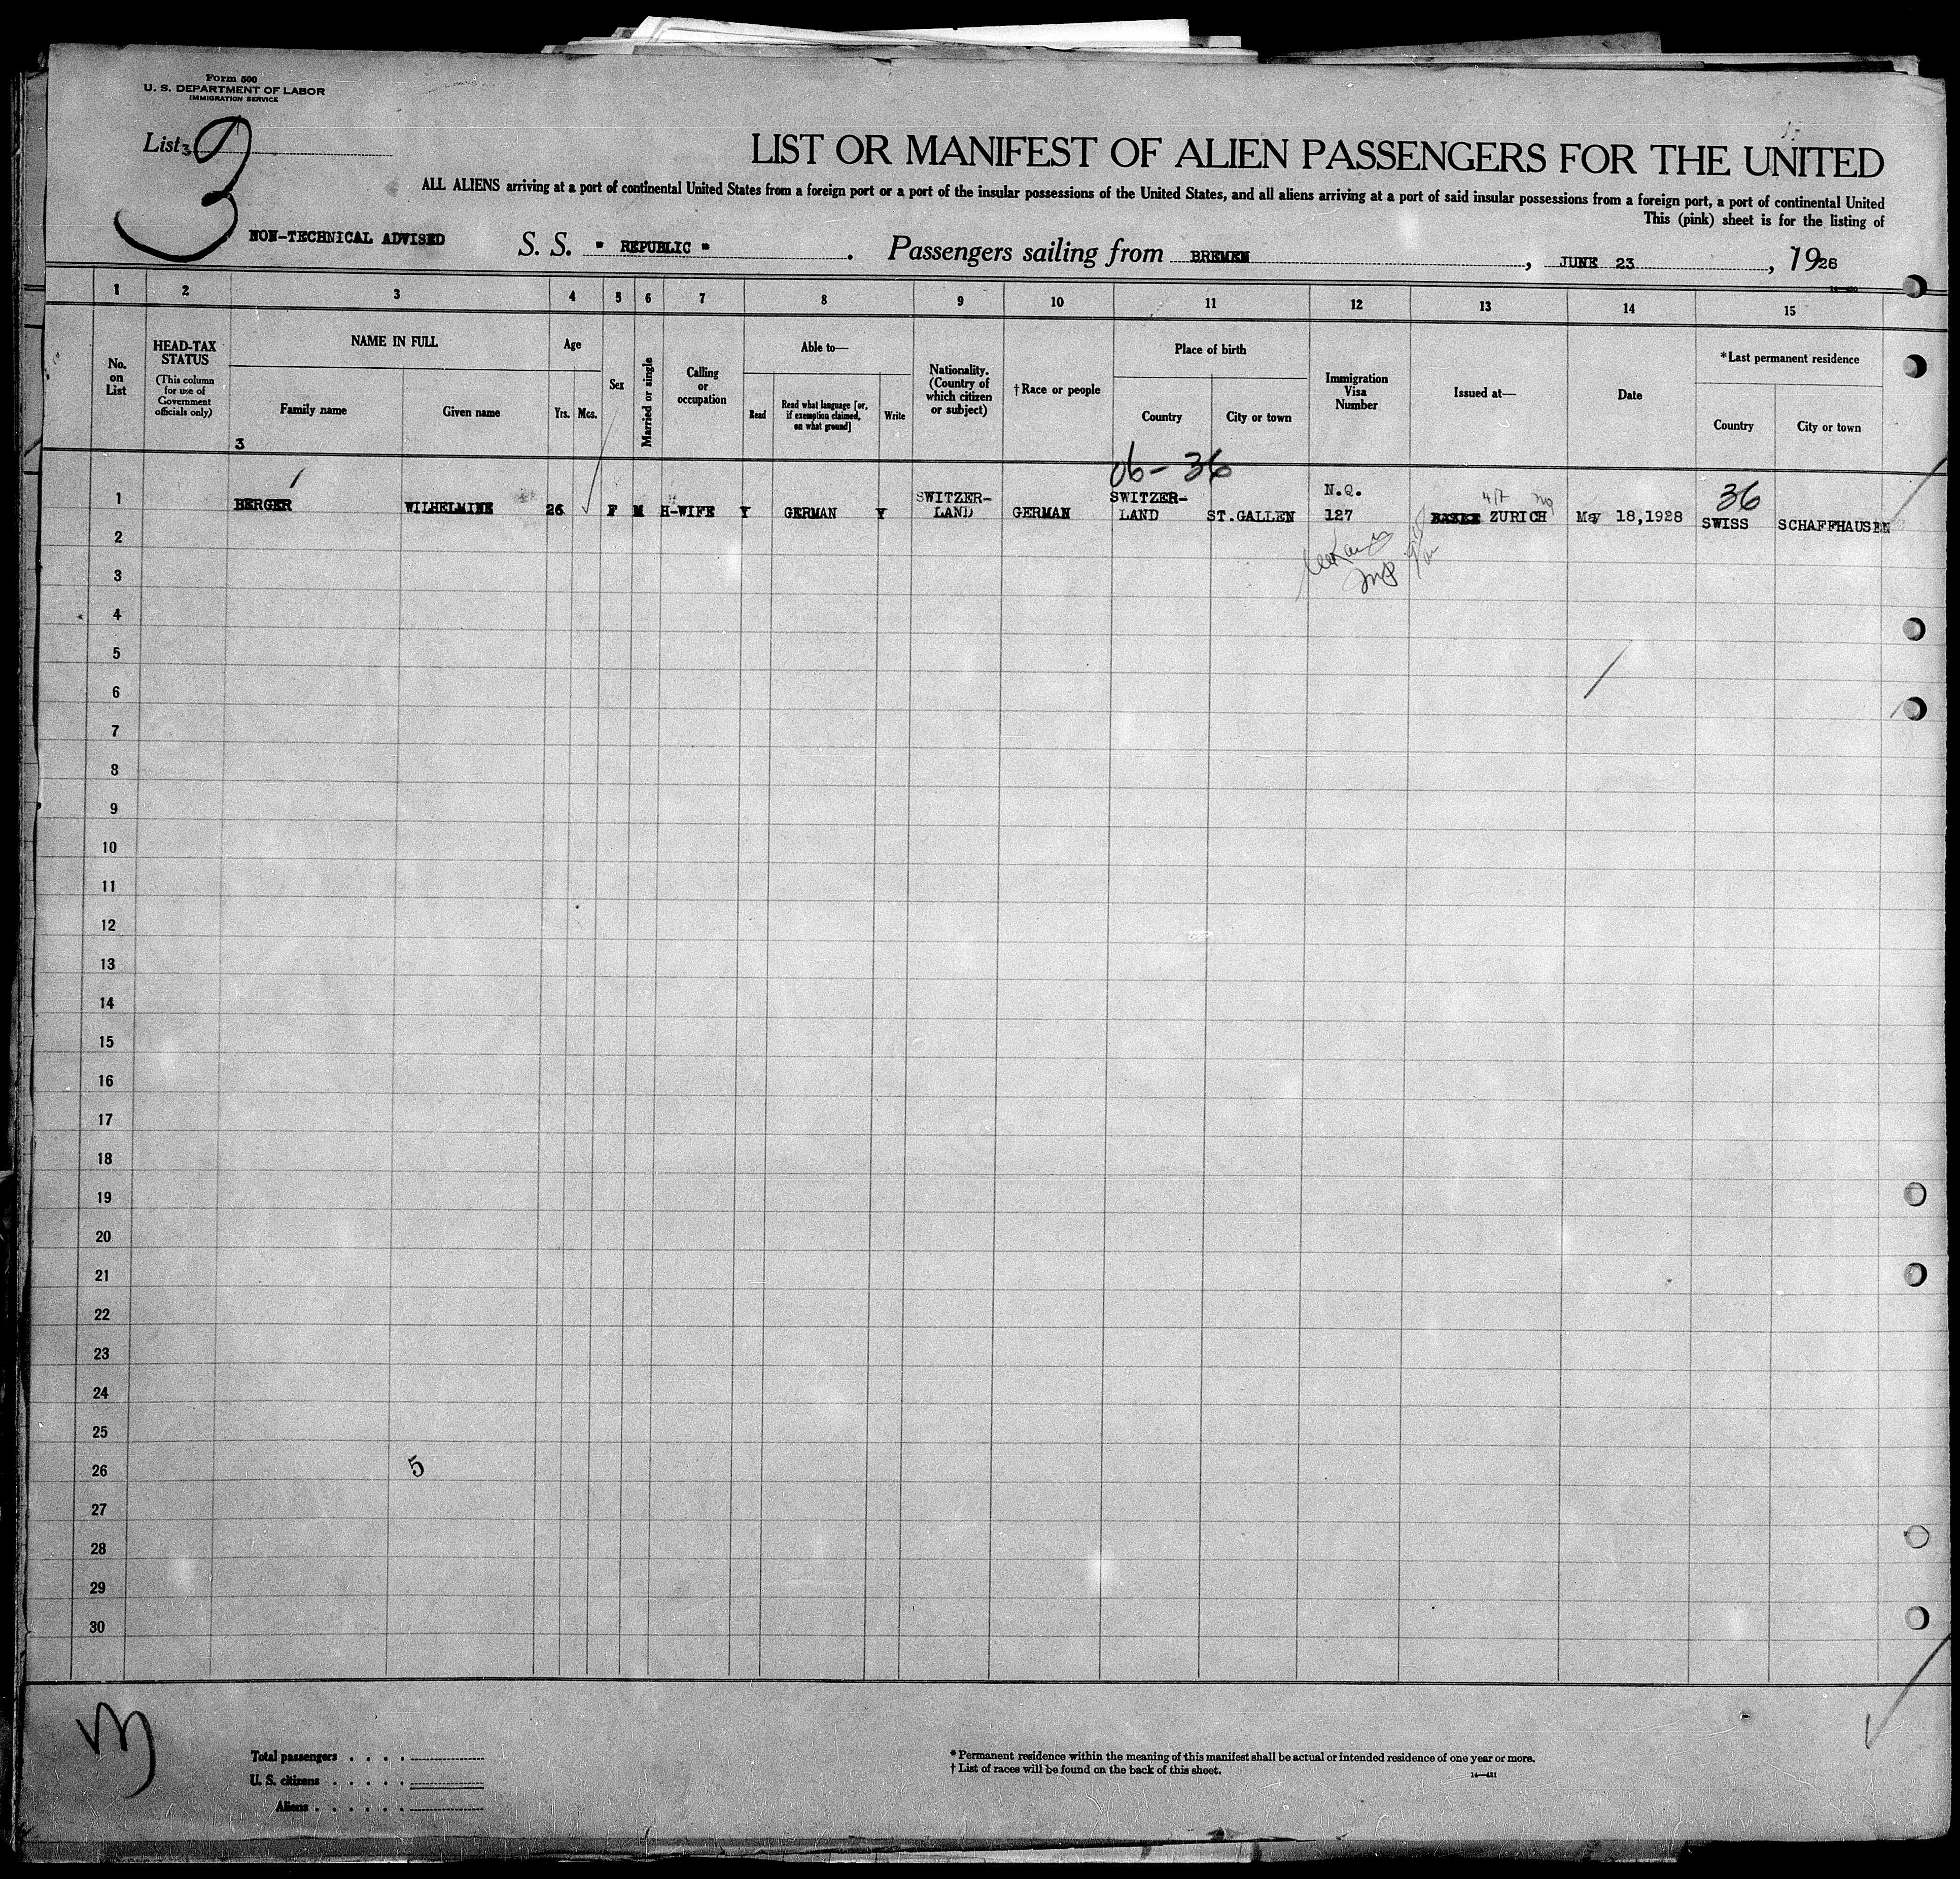 Form 500
U. S. DEPARTMENT OF LABOR
IMMIGRATION SERVICE
List 3
3
LIST OR MANIFEST OF ALIEN PASSENGERS FOR THE UNITED
ALL ALIENS arriving at a port of continental United States from a foreign port or a port of the insular possessions of the United States, and all aliens arriving at a port of said insular possessions from a foreign port, a port of continental United
This (pink) sheet is for the listing of
NON-TECHNICAL ADVISED
S. S. " REPUBLIC " . Passengers sailing from BREMEN , JUNE 23 , 1928
1 2 3 4 5 6 7 8 9 10 11 12 13 14 15
No. on List
HEAD-TAX STATUS
(This column for use of Government officials only)
NAME IN FULL
Family name
Given name
3
Age
Yrs. Mos.
Sex
Married or single
Calling or occupation
Able to—
Read
Read what language [or, if exemption claimed, on what ground]
Write
Nationality. (Country of which citizen or subject)
†Race or people
Place of birth
Country
City or town
Immigration Visa Number
Issued at—
Date
*Last permanent residence
Country
City or town
06-36
1 BERGER WILHELMINE 26 F M H-WIFE Y GERMAN Y SWITZER-LAND GERMAN SWITZER-LAND ST.GALLEN N.Q. 127 ZURICH May 18,1928 36 SWISS SCHAFFHAUSEN
2
3
4
5
6
7
8
9
10
11
12
13
14
15
16
17
18
19
20
21
22
23
24
25
26 5
27
28
29
30
Total passengers . . . .
U. S. citizens . . . . .
Aliens . . . . . .
* Permanent residence within the meaning of this manifest shall be actual or intended residence of one year or more.
† List of races will be found on the back of this sheet.
14—431